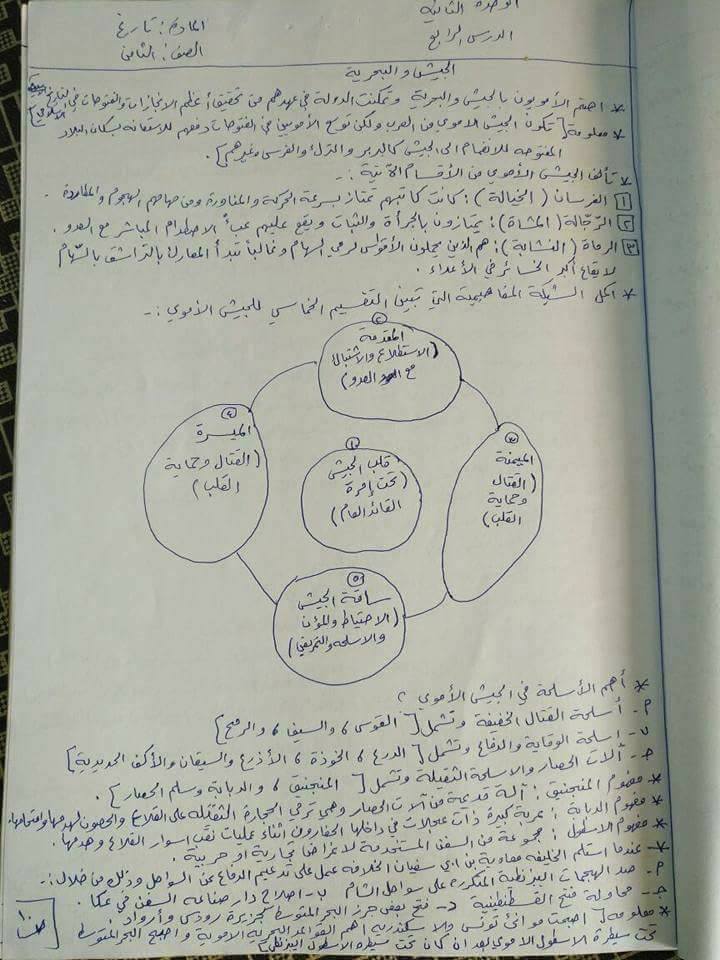 الوحدة الثانية
الدرس الرابع
المادة: تاريخ
الصف: الثامن
الجيش والبحرية
* اهتم الأمويون بالجيش والبحرية وتمكنت الدولة في عهدهم من تحقيق أعظم الانجازات والفتوحات في التاريخ الإسلامي
* معلومة [ تكون الجيش الاموي من العرب ولكن توسع الأمويين في الفتوحات دفعهم للاستعانة بسكان البلاد
المفتوحه للانضمام الى الجيش كالبربر والترك والفرس وغيرهم ].
* تألف الجيش الأموي من الأقسام الآتية :-
١ الفرسان ( الخيالة ) : كانت كتائبهم تمتاز بسرعة الحركة والمناورة ومن مهامهم الهجوم والمطاردة
٢ الرّجالة ( المشاة ) : يمتازون بالجرأة والثبات ويقع عليهم عبأ الاصطدام المباشر مع العدو .
٣ الرماة ( النشابة ) : هم الذين يحملون الأقواس لرمي السهام وغالباً تبدأ المعارك بالتراشق بالسّهام
لايقاع أكبر الخسائر في الأعداء .
* اكمل الشبكة المفاهيمية التي تبين التقسيم الخماسي للجيش الأموي :-
٢
المقدمة
(الاستطلاع والاشتباك
مع العدو)
٤
الميسرة
(القتال وحماية
القلب)
١
قلب الجيش
(تحت إمرة
القائد العام)
٣
الميمنة
(القتال
وحماية
القلب)
٥
ساقة الجيش
(الاحتياط والمؤن
والاسلحه والتمريض)
* أهم الأسلحة في الجيش الأموي ؟
م- أسلحة القتال الخفيفة وتشمل [ القوس ، والسيف ، والرمح ]
ب- اسلحة الوقاية والدفاع وتشمل [ الدرع ، الخوذة ، الأذرع والسيقان والأكف الحديدية ]
ج- آلات الحصار والاسلحة الثقيلة وتشمل [ المنجنيق ، والدبابة وسلم الحصار ].
* مفهوم المنجنيق : آلة قديمة من آلات الحصار وهي ترمي الحجارة الثقيله على القلاع والحصون لهدمها واقتحامها.
* مفهوم الدبابة : عربة كبيرة ذات عجلات في داخلها الحفارون اثناء عمليات نقب اسوار القلاع وهدمها .
* مفهوم الاسطول : مجموعة من السفن المستخدمة لاغراض تجارية او حربية .
* عندما استلم الخليفه معاوية بن ابي سفيان الخلافه عمل على تدعيم الدفاع عن السواحل وذلك من خلال :-
م- صد الهجمات البيزنطية المتكررة على سواحل الشام ب- اصلاح دار صناعه السفن في عكا .
ج- محاولة فتح القسطنطينية د- فتح بعض جزر البحر المتوسط كجزيرة رودس وأرواد .
* معلومه [ اصبحت موانئ تونس والاسكندريه اهم القواعد البحرية الاموية واصبح البحر المتوسط
تحت سيطرة الاسطول الاموي بعد ان كان تحت سيطره الاسطول البيزنطي ]
١٠